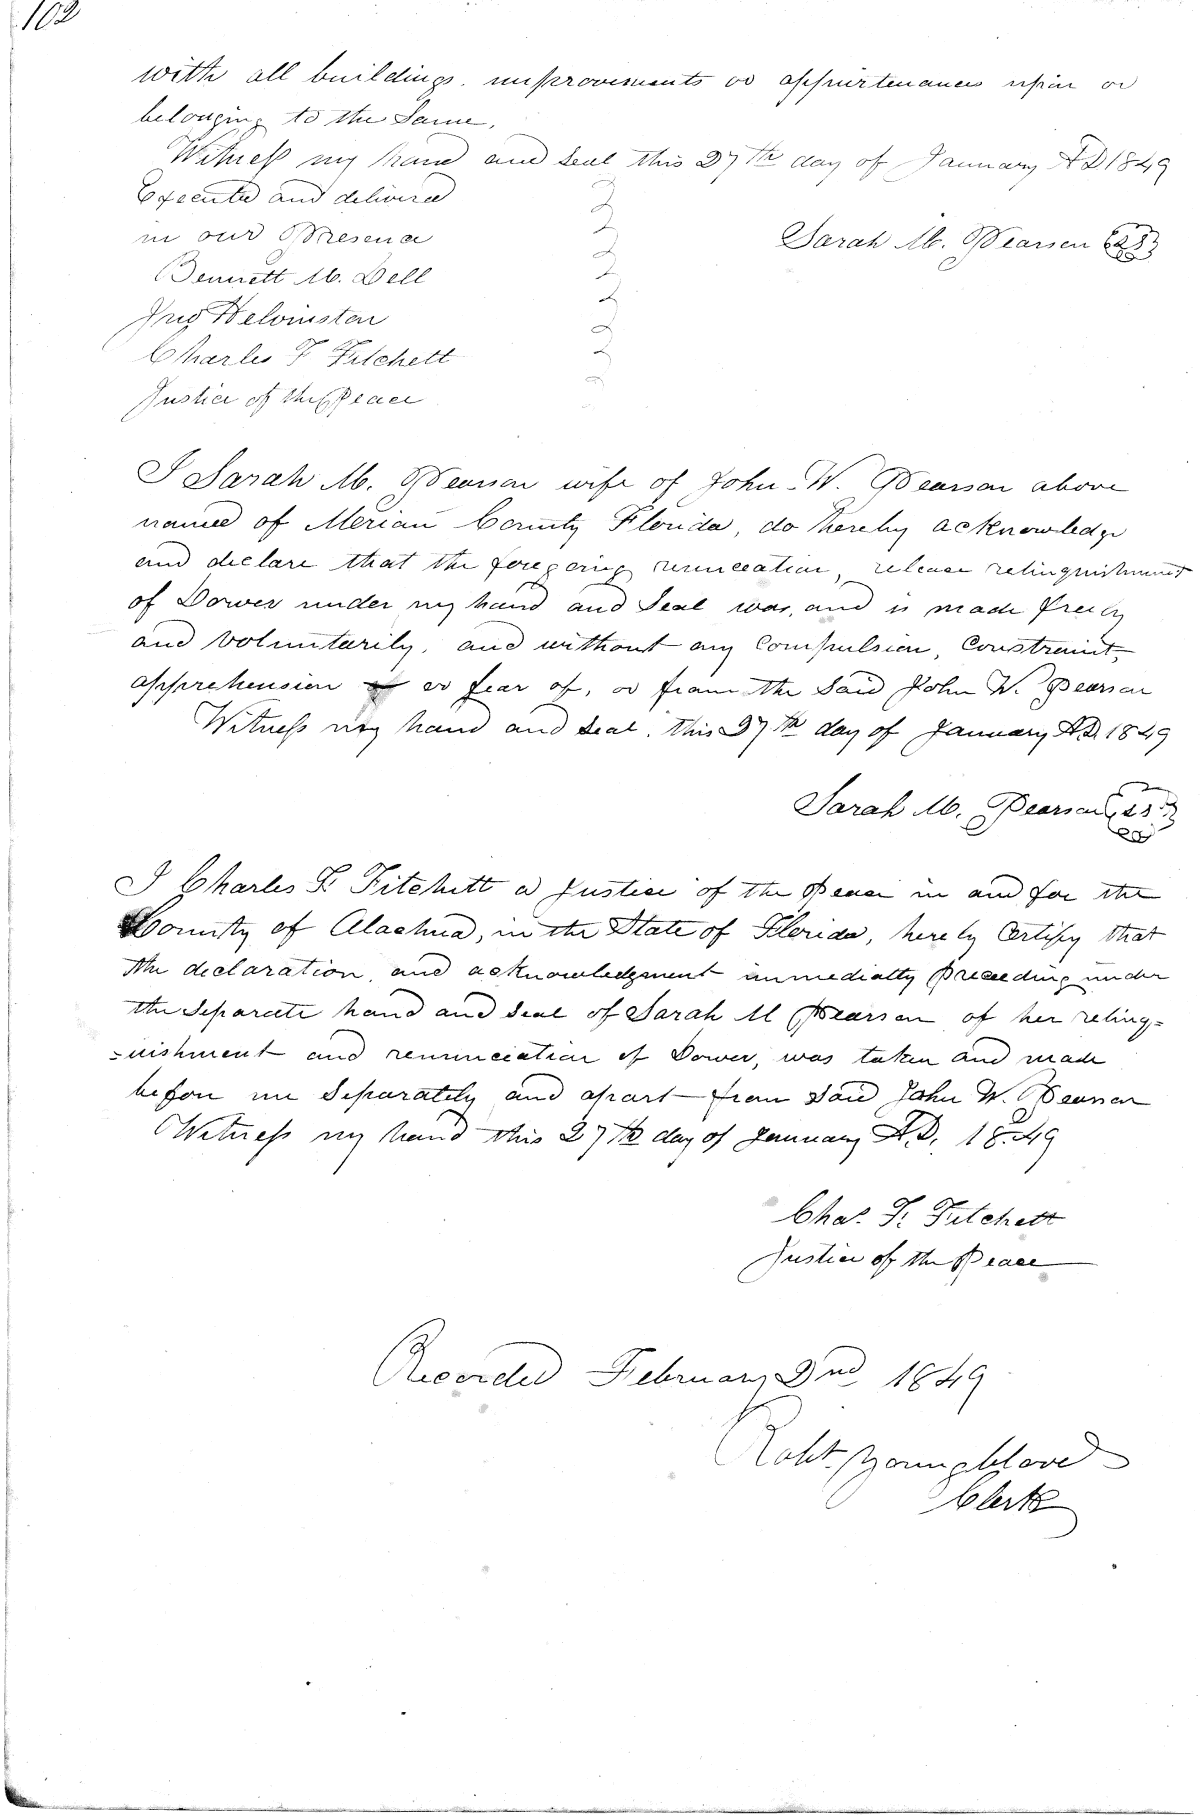 102
with all buildings. improvements or appurtenances upon or
belonging to the Same,
Witness my hand and seal this 27th day of January A D 1849
Executed and delivered
in our Presence
Sarah M. Pearson LS
Bennett M. Dell
Jno Helvinston
Charles F Fitchett
Justice of the Peace
I Sarah M. Pearson wife of John W. Pearson above
named of Merian County Florida, do hereby acknowledge
and declare that the foregoing renunceation, release relinquishment
of Dower under my hand and Seal was, and is made freely
and voluntarily, and without any Compulsion, Constraint,
apprehension or fear of, or from the Said John W. Pearson
Witness my hand and seal, this 27th day of January A.D. 1849
Sarah M. Pearson LS
I Charles F. Fitchett a Justice of the Peace in and for the
County of Alachua, in the State of Florida, hereby Certify that
the declaration, and acknowledgment immediatly preceeding under
the Separate hand and seal of Sarah M Pearson of her relinq=
=uishment and renunciation of Dower, was taken and made
before me Separately and apart from said John W. Pearson
Witness my hand this 27th day of January A.D. 1849
Chas. F. Fitchett
Justice of the Peace
Recorded February 2nd 1849
Robt. Youngblood
Clerk